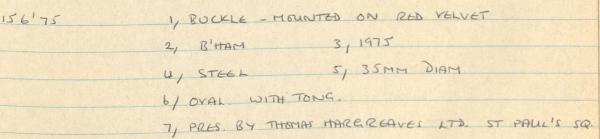 156'75 1, BUCKLE - MOUNTED ON RED VELVET
2, B'HAM 3, 1975
4, STEEL 5, 35MM DIAM
6/ OVAL WITH TONG.
7, PRES. BY THOMAS HARGREAVES LTD. ST PAUL'S SQ.